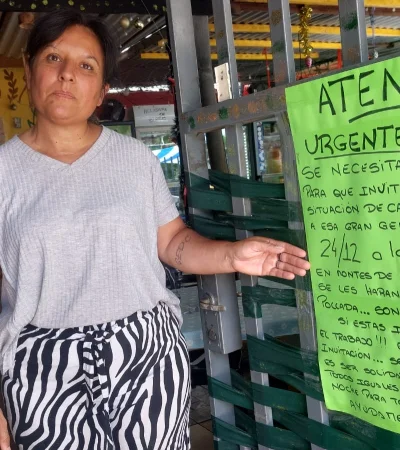 ATEN
URGENTE
SE NECESITA
PARA QUE INVIT
SITUACIÓN DE CA
A ESA GRAN GE
24/12 a la
EN MONTES DE
SE LES HARAN
POLLADA... SON
SI ESTAS I
EL TRABAJO!!!
INVITACIÓN... SE
ES SER SOLIDA
TODOS IGUALES
NOCHE PARA TO
AYUDATE